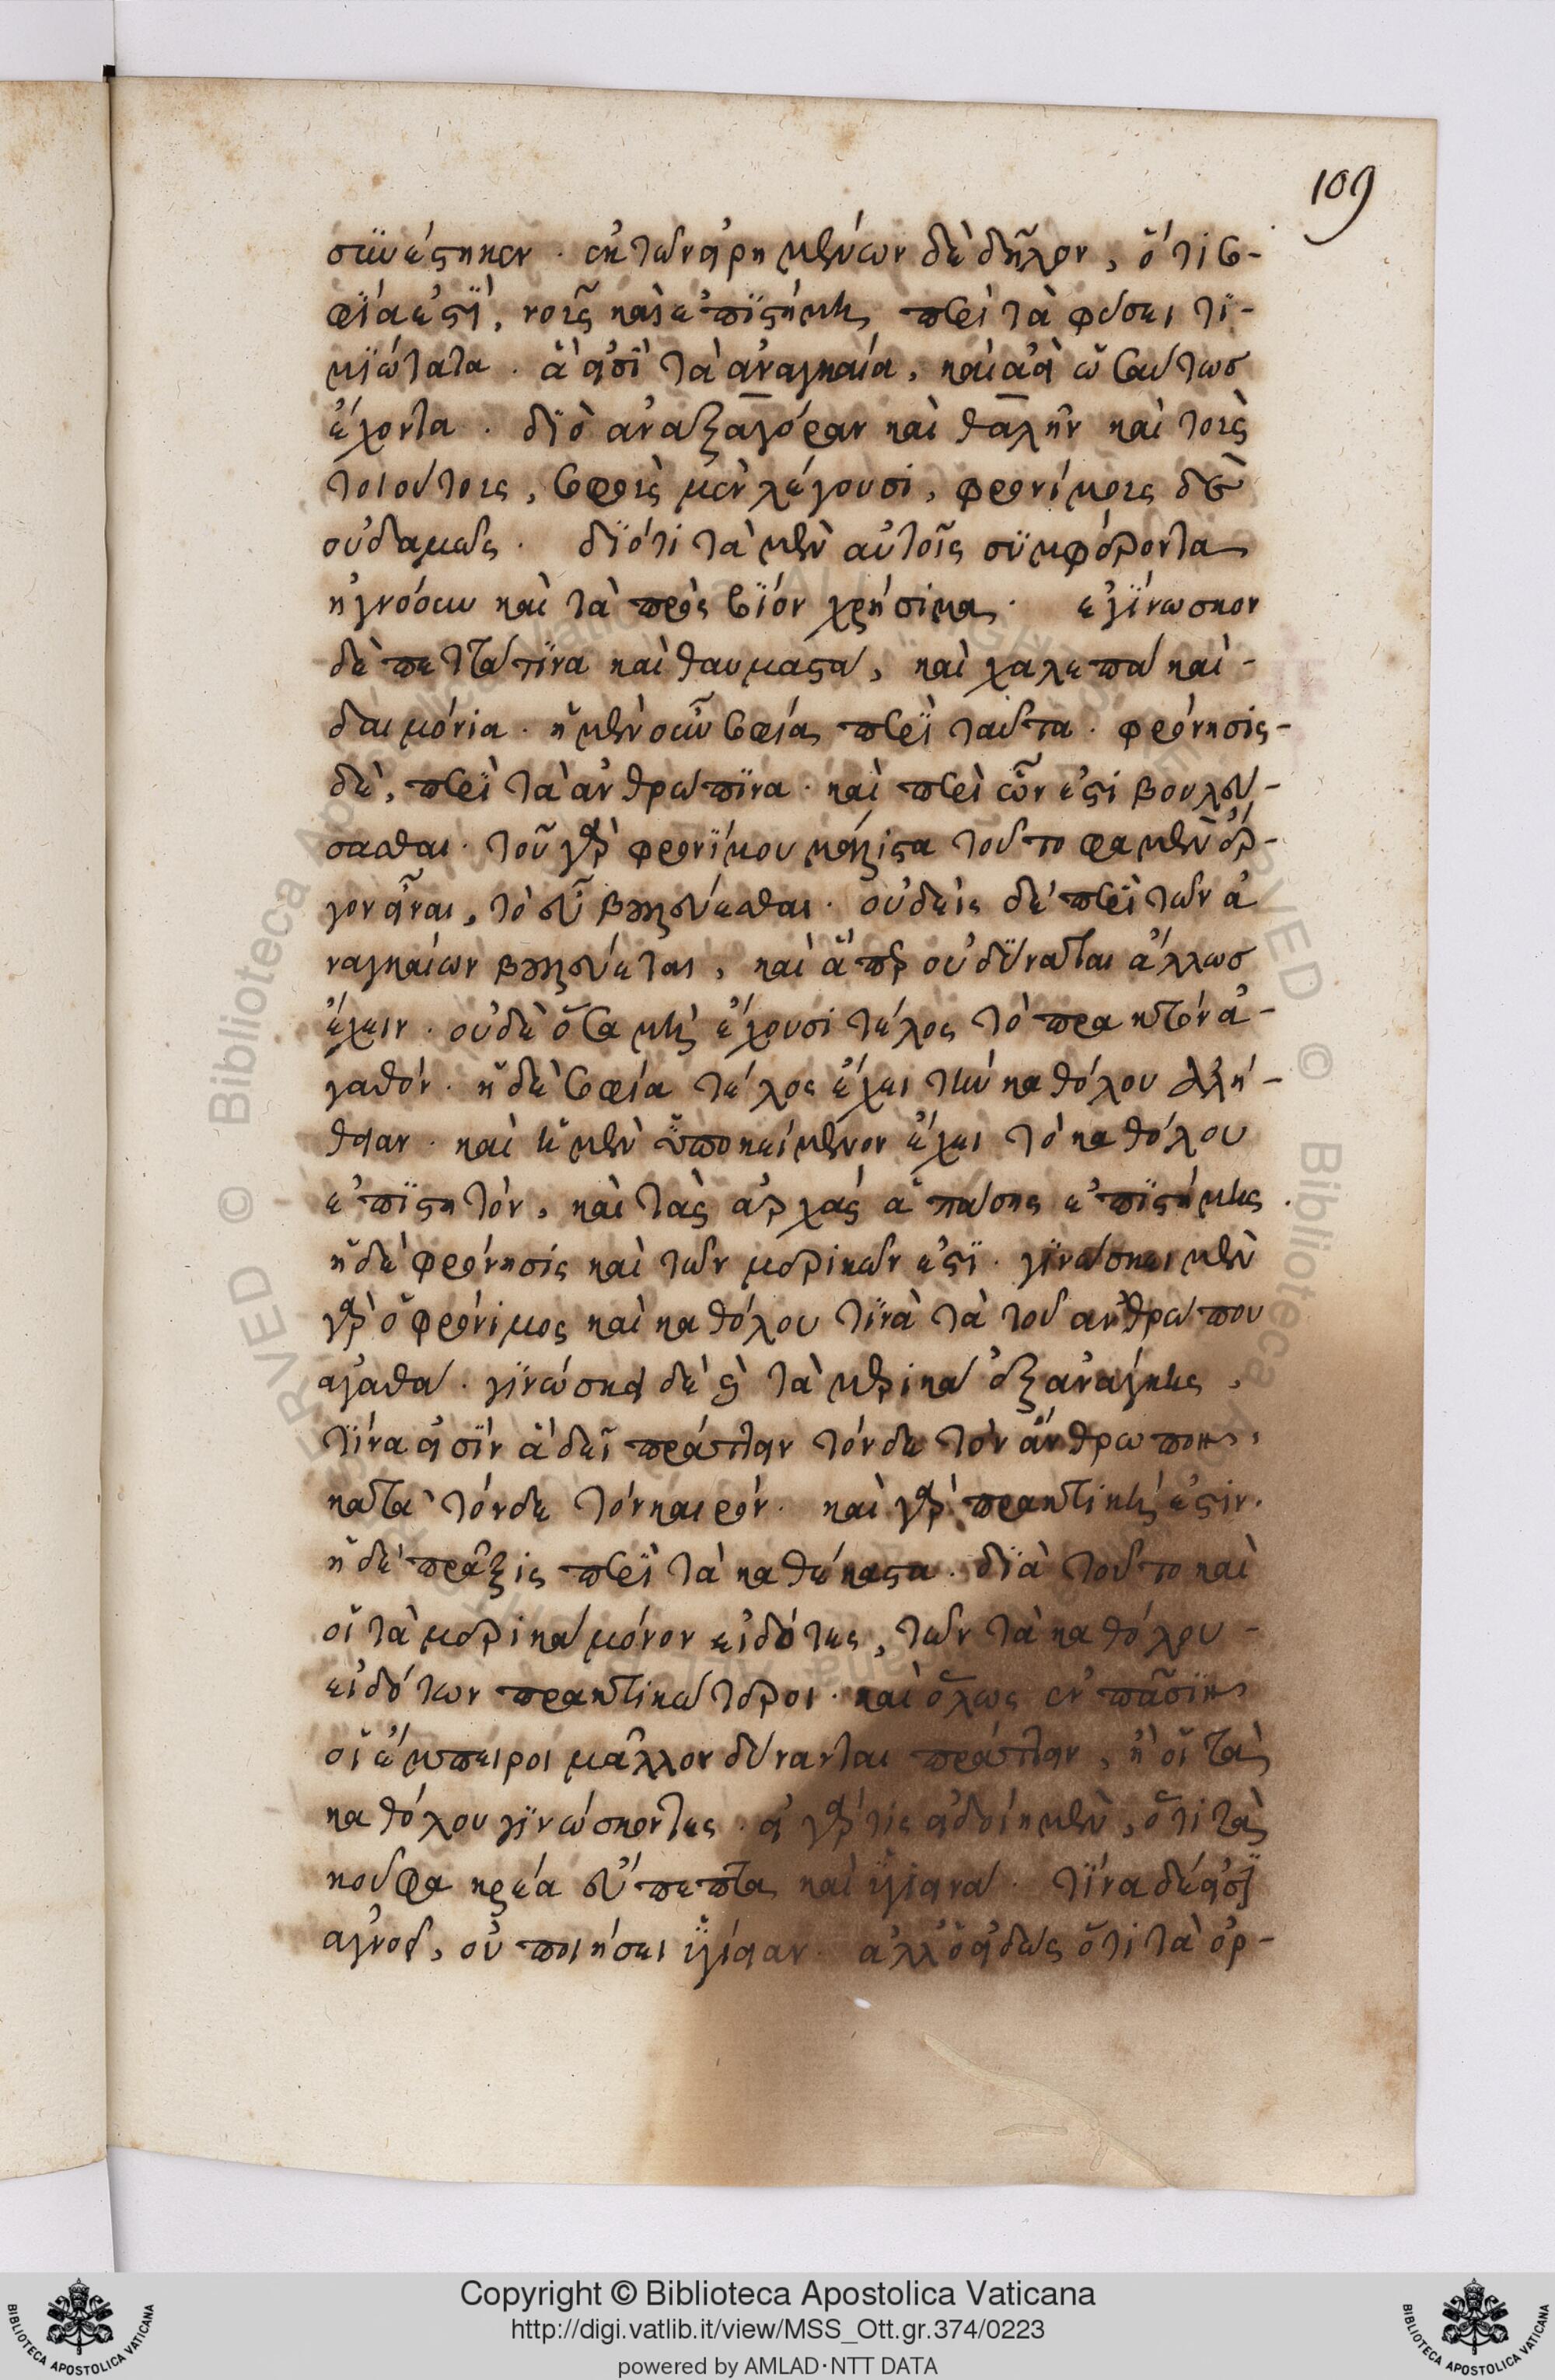 109
συνέστηκεν. ἐκ τῶν εἰρημένων δὲ δῆλον, ὅτι σο-
φία ἐστὶ, νοῦς καὶ ἐπιστήμη περὶ τὰ φύσει τι-
μιώτατα. ἅ εἰσὶ τὰ ἀναγκαία, καὶ ἀεὶ ὡσαύτωσ
ἔχοντα. διὸ ἀναξαγόραν καὶ θαλῆν καὶ τοὺς
τοιούτους, σοφοὺς μὲν λέγουσι, φρονίμους δὲ
οὐδαμῶς. διότι τὰ μὲν αὐτοῖς συμφέροντα
ἠγνόουν καὶ τὰ πρὸς βίον χρήσιμα. ἐγίνωσκον
δὲ περιττά τινα καὶ θαυμαστά, καὶ χαλεπά καὶ-
δαιμόνια. ἡ μὲν οὖν σοφία περὶ ταῦτα. φρόνησις-
δὲ, περὶ τὰ ἀνθρώπινα. καὶ περὶ ὧν ἐστι βουλεύ-
σασθαι. τοῦ γὰρ φρονίμου μάλιστα τοῦτο φαμὲν ἔρ-
γον εἶναι, τὸ εὖ βουλεύεσθαι. οὐδεὶς δὲ περὶ τῶν ἀ
ναγκαίων βουλεύεται, καὶ ἅπερ οὐ δύναται ἄλλωσ
ἔχειν. οὐδὲ ὅσα μὴ ἔχουσι τέλος τὸ πρακτὸν ἀ-
γαθόν. ἡ δὲ σοφία τέλος ἔχει τὴν καθόλου ἀλή-
θειαν. καὶ ἡ μὲν ὑποκείμενον ἔχει τὸ καθόλου
ἐπιστητόν, καὶ τὰς ἀρχάς ἁπάσης ἐπιστήμης.
ἡ δὲ φρόνησις καὶ τῶν μερικῶν ἐστϊ. γινώσκει μὲν
γὰρ ὁ φρόνιμος καὶ καθόλου τινὰ τὰ τοῦ ἀνθρώπου
ἀγαθά. γινώσκει δὲ καὶ τὰ μερικά ἐξ ἀνάγκης,
τίνα εἰσίν ἃ δεῖ πράττειν τόνδε τὸν ἄνθρωπον,
κατὰ τόνδε τὸν καιρόν. καὶ γὰρ πρακτική ἐστιν.
ἡ δὲ πρᾶξις περὶ τὰ καθέκαστα. διὰ τοῦτο καὶ
οἱ τὰ μερικά μόνον εἰδότες, τῶν τὰ καθόλου-
εἰδότων πρακτικώτεροι. καὶ ὅλως ἐν πᾶσιν
οἱ ἔμπειροι μᾶλλον δύνανται πράττειν, ἢ οἱ τὰ
καθόλου γινώσκοντες. εἰ γὰρ τις εἰδοίη μὲν, ὅτι τὰ
κοῦφα κρέα εὔπεπτα καὶ ὑγιεινά. τίνα δέ εἰσὶ
ἀγνοεῖ, οὐ ποιήσει ὑγίειαν. ἀλλ' ὁ εἰδὼς ὅτι τὰ ὀρ-
Copyright © Biblioteca Apostolica Vaticana
http://digi.vatlib.it/view/MSS_Ott.gr.374/0223
powered by AMLAD·NTT DATA